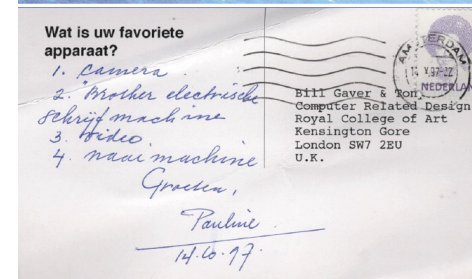 Wat is uw favoriete
apparaat?
1. camera
2. "Brother electrische
schrijfmachine
3. video.
4. naaimachine
Groeten,
Pauline
14.6.97.
AMSTERDAM
V.97-22
NEDERLAN
Bill Gaver & Tony
Computer Related Design
Royal College of Art
Kensington Gore
London SW7 2EU
U.K.